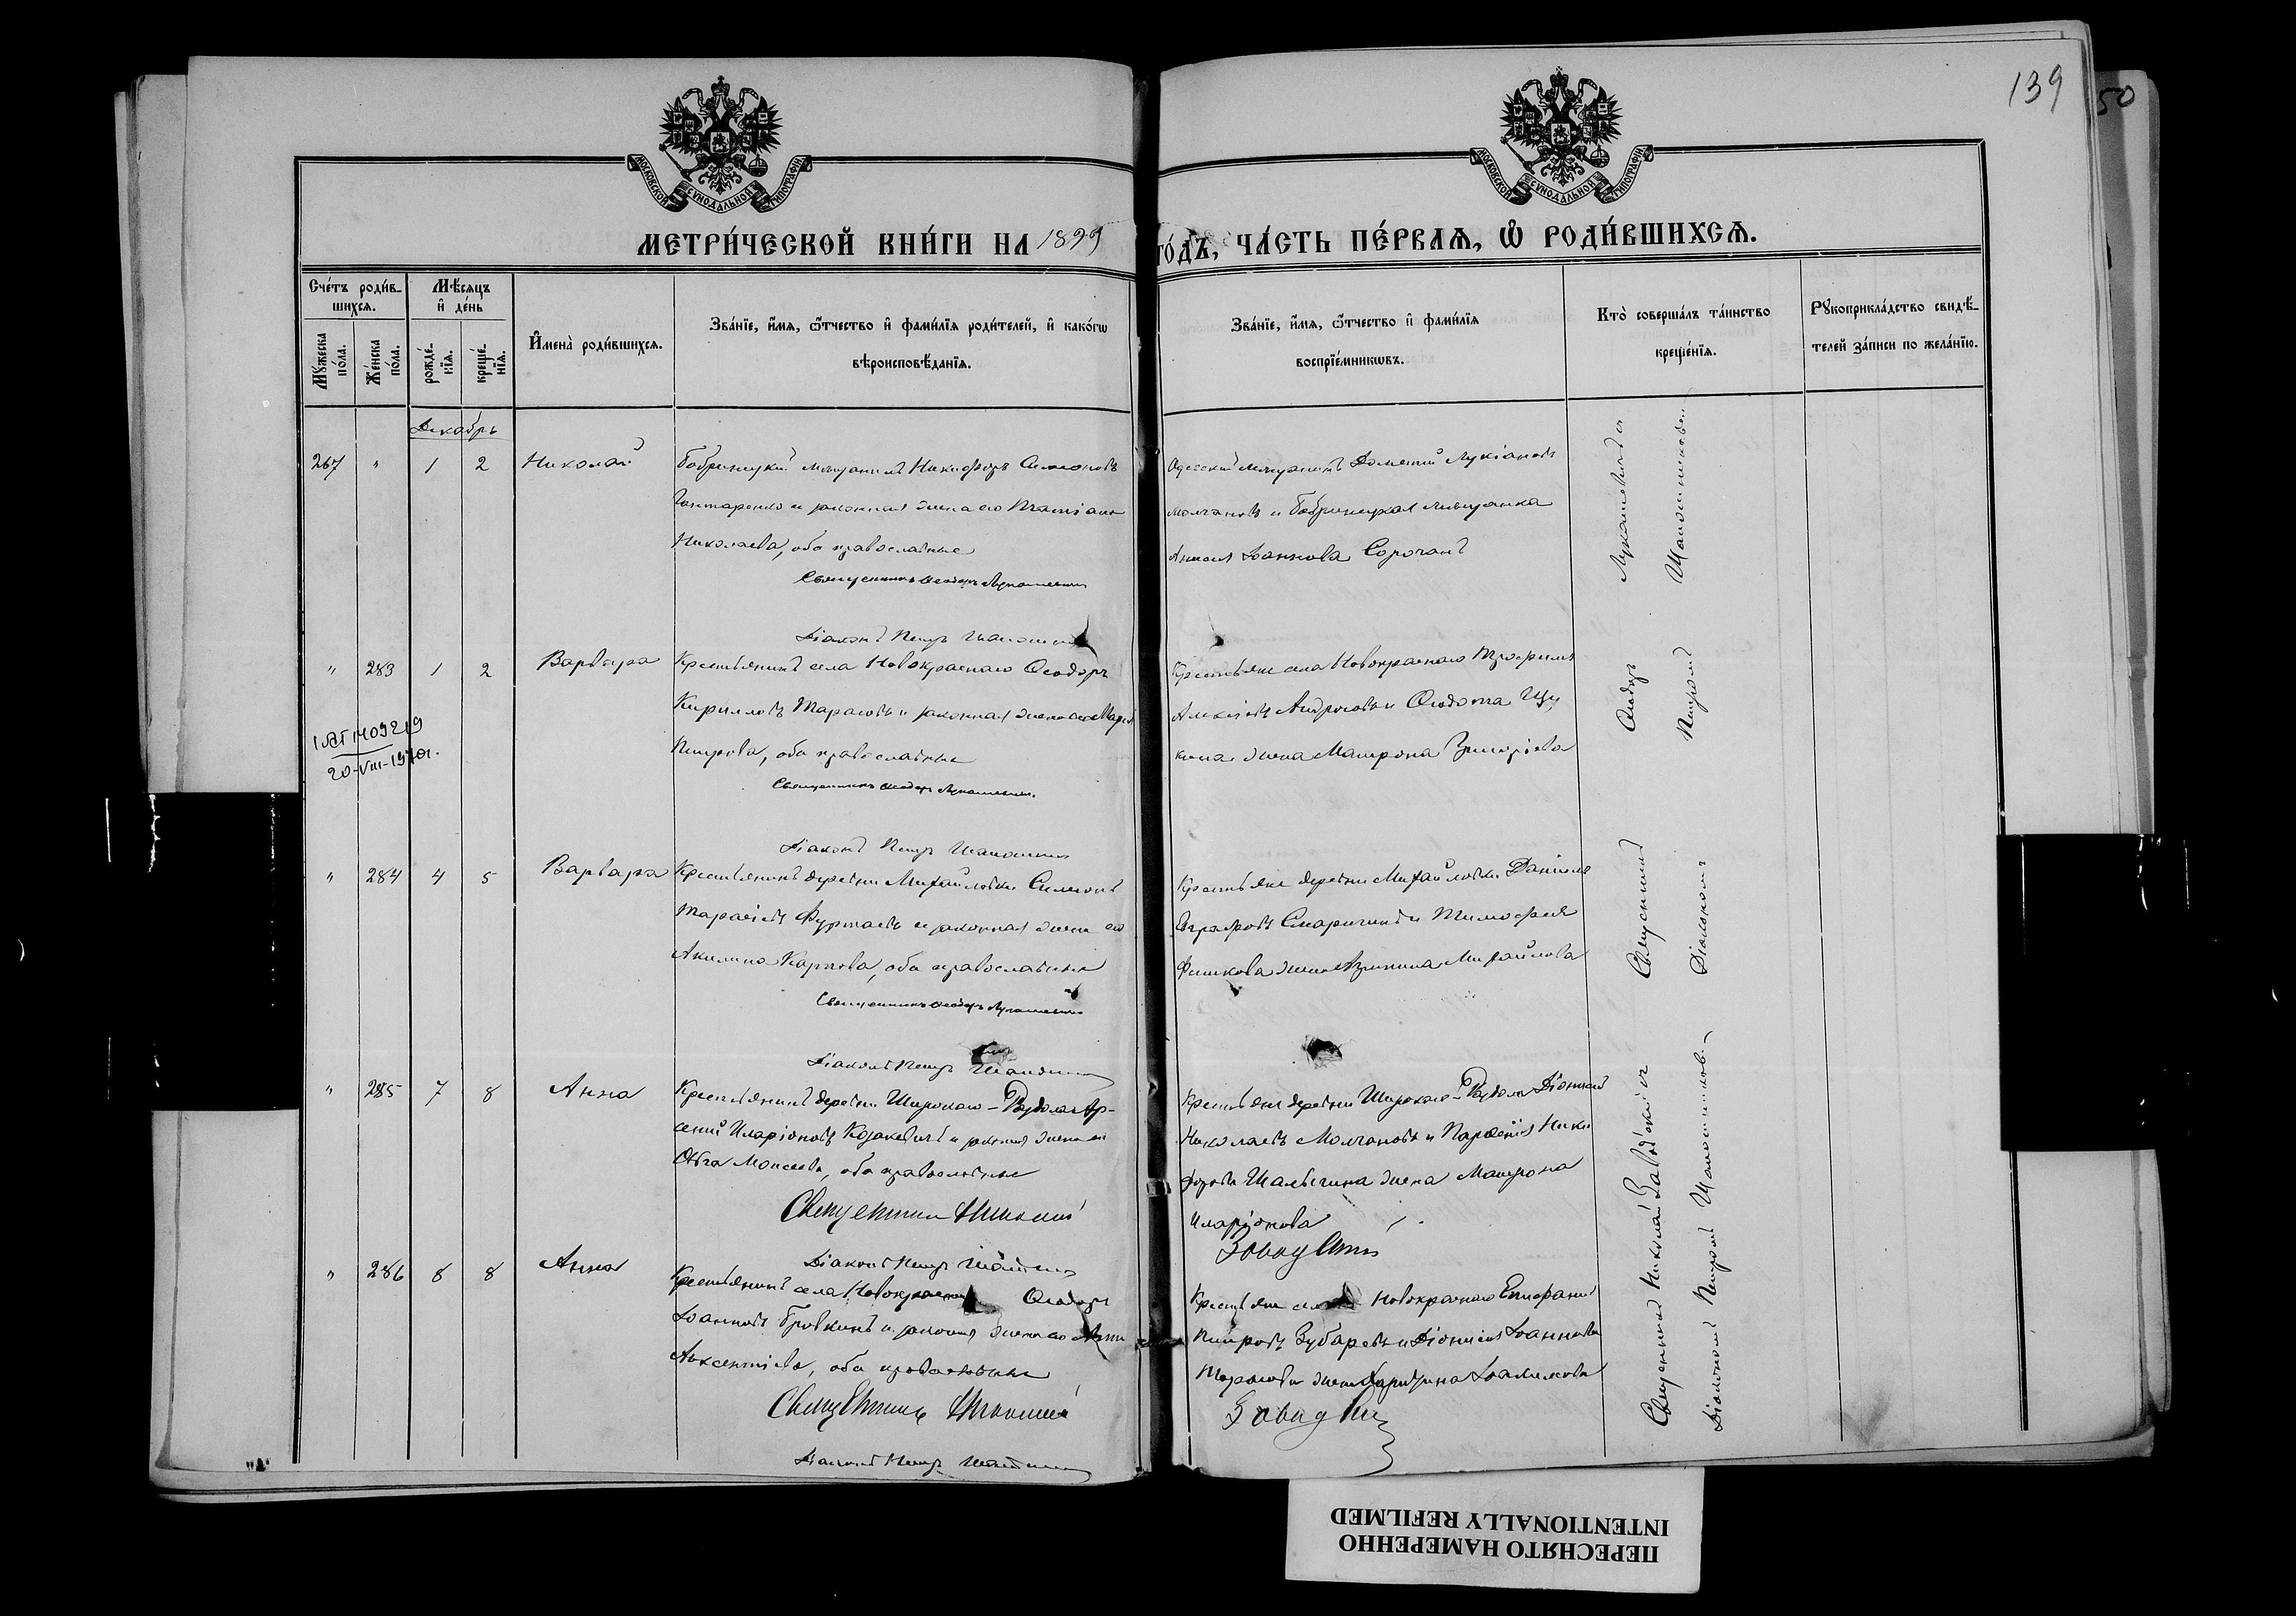 139
50
МОСКОВСКОЙ СѴНОДАЛЬНОЙ ТИПОГРАФІИ
МОСКОВСКОЙ СѴНОДАЛЬНОЙ ТИПОГРАФІИ
МЕТРИ́ЧЕСКОЙ КНИ́ГИ НА 1899 ГО́ДЪ, ЧА́СТЬ ПЕ́РВАѦ, Ѽ РОДИ́ВШИХСѦ.
Сче́тъ роди́в-
шихсѧ.
Мꙋжеска по́ла.
Же́нска по́ла.
Мѣ́сяцъ
и҆ де́нь
рожде́-нїѧ.
креще́-нїѧ.
И҆мена̀ роди́вшихсѧ.
Зва́нїе, и҆́мѧ, ѻ҆́тчество и҆ фами́лїѧ роди́телей, и҆ како́гѡ
вѣроисповѣ́данїѧ.
Зва́нїе, и҆́мѧ, ѻ҆́тчество и҆ фами́лїѧ
воспрїе́мникѡвъ.
Кто̀ соверша́лъ та́инство
креще́нїѧ.
Рꙋкоприкла́дство свидѣ́-
телей за́писи по жела́нїю.
Декабрь
267 " 1 2 Николай
Бобринецкій мѣщанинъ Никифоръ Симоновъ
Гонтаренко и законная жена его Татіана
Николаева, оба православные
Священникъ Ѳеодоръ Лукашевичъ
Діаконъ Петръ
Одесскій мѣщанинъ Дометій Лукіановъ
Молчановъ и Бобринецкая мѣщанка
Анисія Іоаннова Сорочанъ
" 283 1 2 Варвара
Крестьянинъ села Новокраснаго Ѳеодоръ
Кирилловъ Тарасовъ и законная жена его Марія
Петрова, оба православные
Священникъ Ѳеодоръ Лукашевичъ.
Діаконъ Петръ
Крестьяне села Новокраснаго Трофимъ
Алексіевъ Андросовъ и Ѳеодота Щу
кина жена Матрона Григоріева
20-VIII-1970г.
" 284 4 5 Варвара
Крестьянинъ деревни Михайловки Симеонъ
Тарасіевъ Фуртаевъ и законная жена его
Акилина Карпова, оба православные
Священникъ Ѳеодоръ Лукашевичъ
Діаконъ Петръ
Крестьяне деревни Михайловки Даніилъ
Евграфовъ Смаричинъ и Тимофея
Фишкова жена Агрипина Михайлова
" 285 7 8 Анна
Крестьянинъ деревни Широкаго-Раздола Ар-
сеній Иларіоновъ Козакевичъ и законная жена его
Ольга Моисеева, оба православные
Священникъ Николай
Діаконъ Петръ
Крестьяне деревни Широкаго-Раздола Діонисій
Николаевъ Молчановъ и Парѳенія Ники
форова Шалыгина жена Матрона
Иларіонова
" 286 8 8 Анна
Крестьянинъ села Ѳеодоръ
Іоанновъ Бровкинъ и законная жена его
Авксентіева, оба православные
Священникъ Николай
Діаконъ Петръ
Крестьяне села Новокраснаго Епифаній
Петровъ Зубаревъ и Діонисія Іоаннова
Тарасова жена Харитина Іоакимова
Священникъ Ѳеодоръ Лукашевичъ съ
Діакономъ Петромъ
Священникъ Николай Завадскій съ
Діакономъ Петромъ
ПЕРЕСНЯТО НАМЕРЕННО
INTENTIONALLY REFILMED